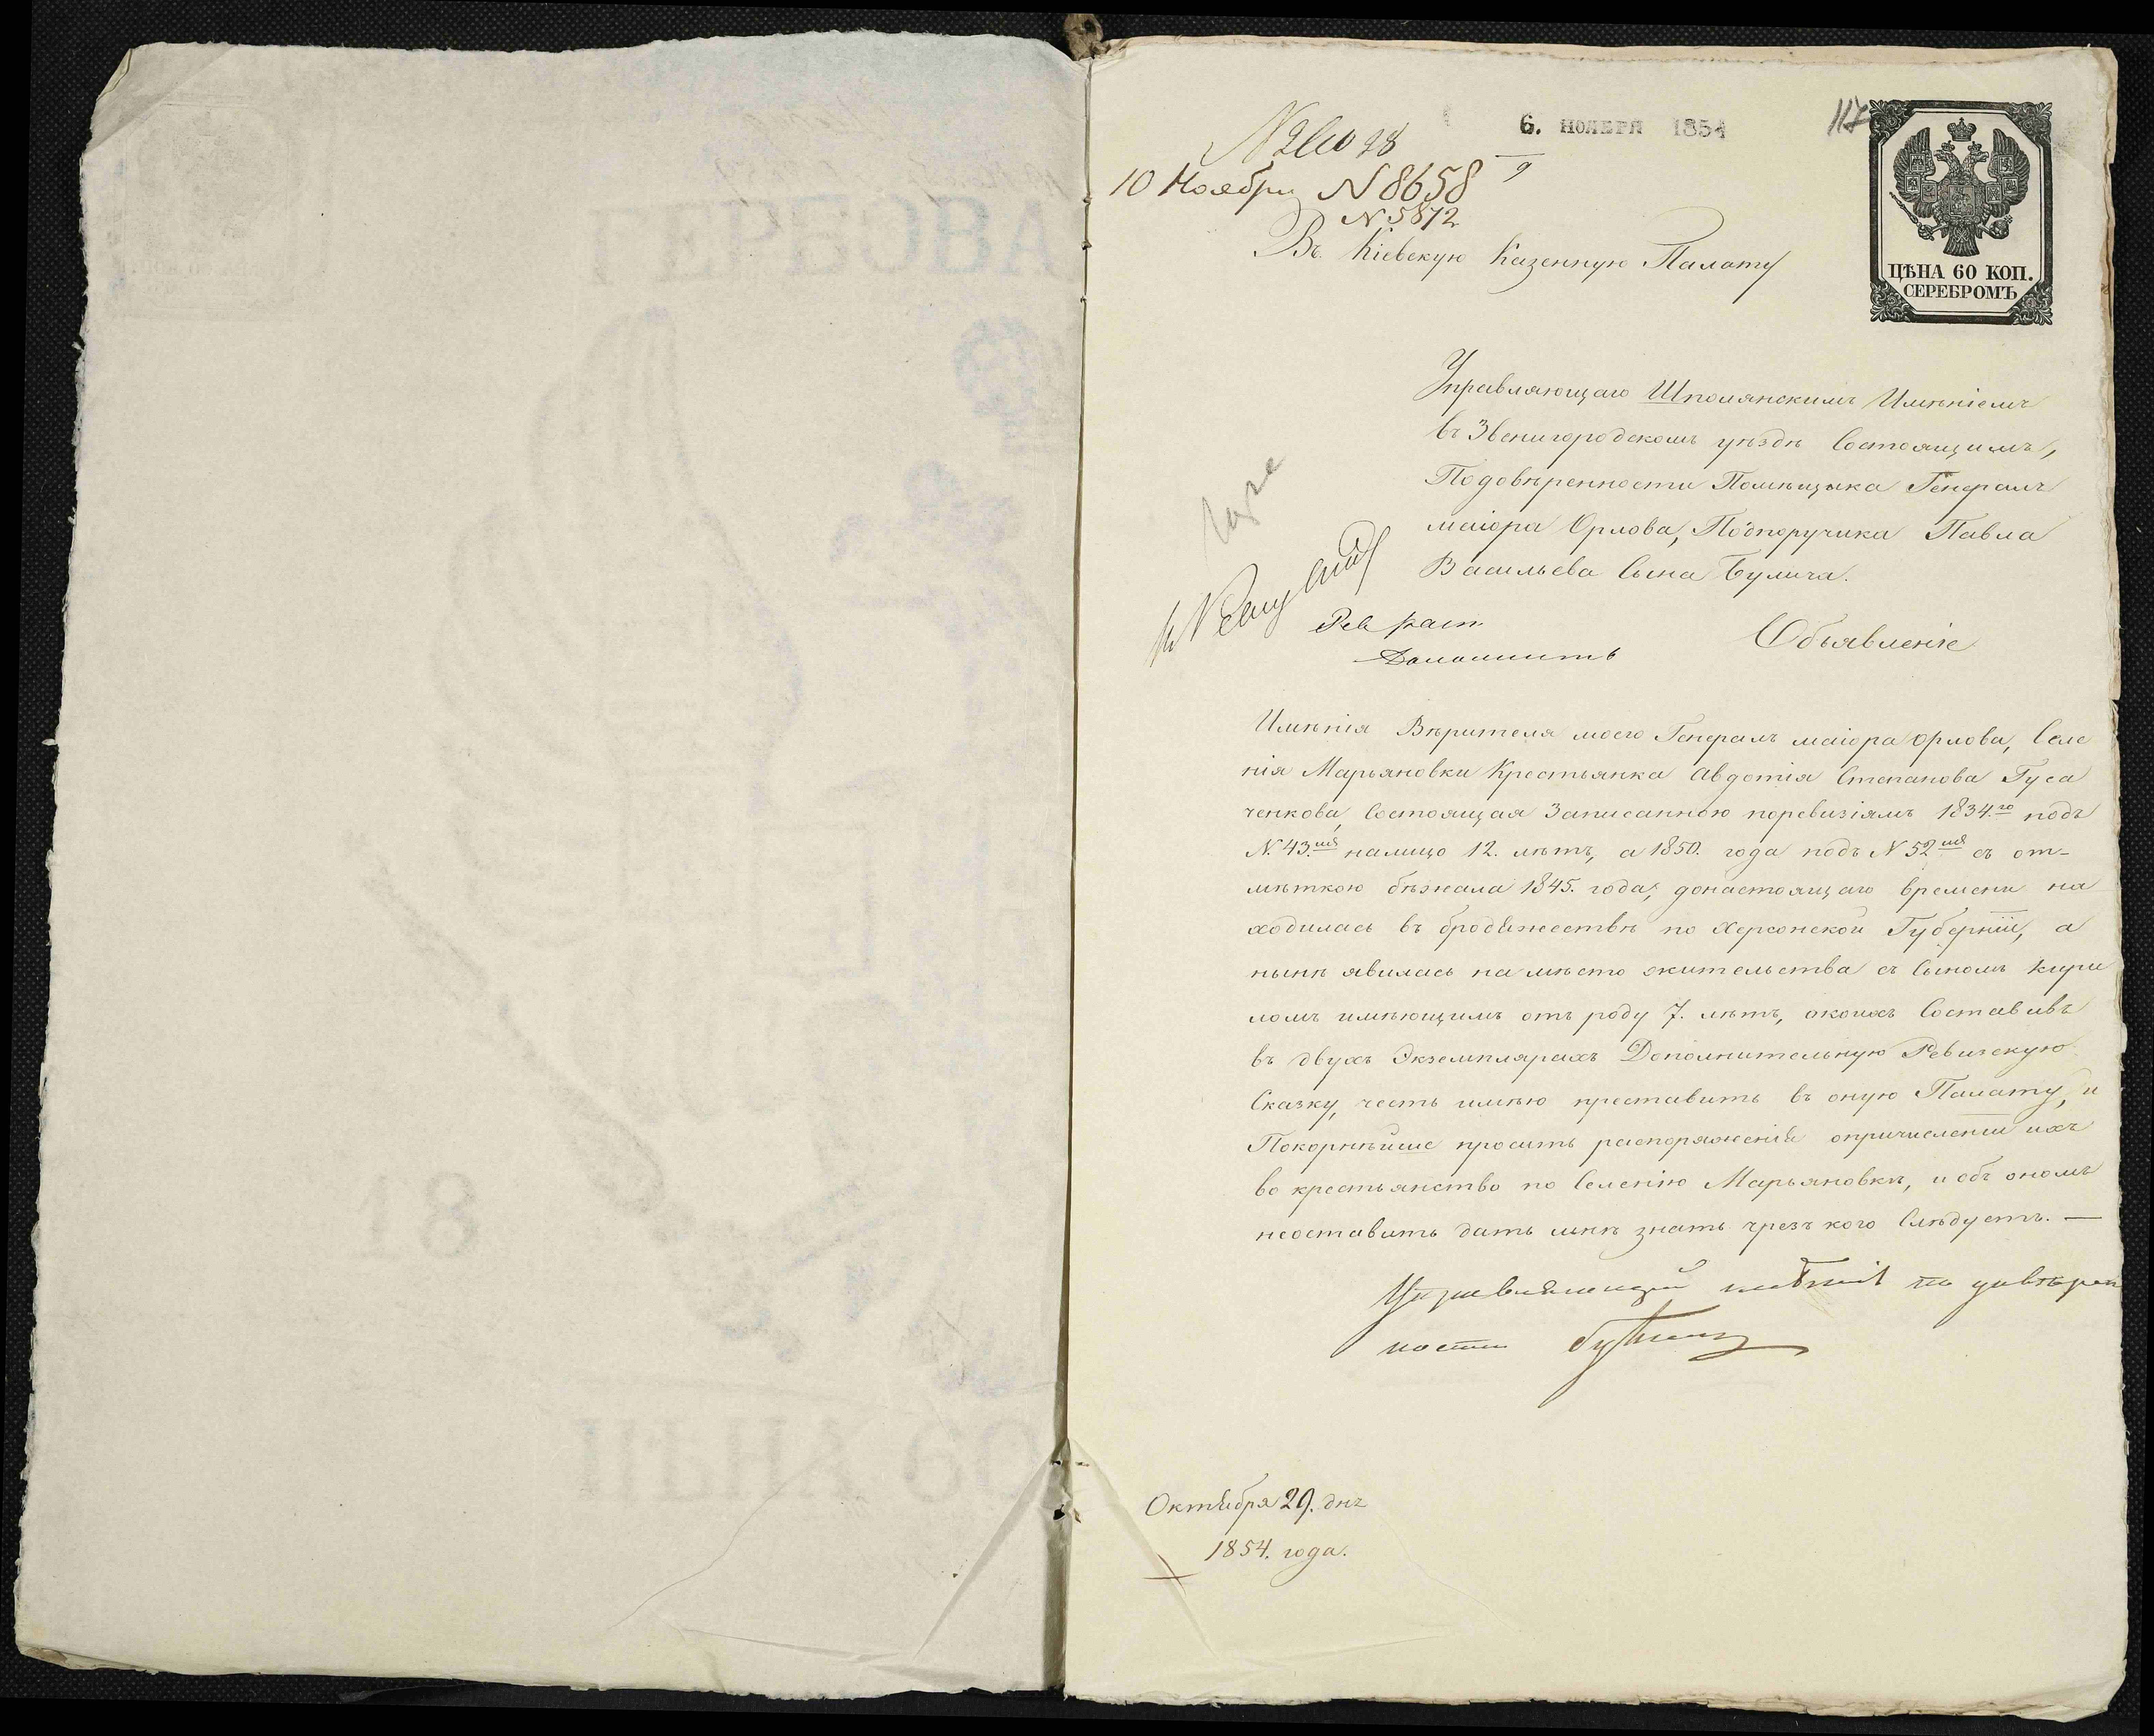 6. НОЯБРЯ 1854
117
10 Ноября N 8658
N 5872
ЦѢНА 60 КОП.
СЕРЕБРОМЪ
Въ Кіевскую Казенную Палату
Управляющаго Шполянскимъ Имѣніемъ
въ Звенигородскомъ уѣздѣ Состоящимъ,
Подовѣренности Помѣщика Генералъ
маіора Орлова, Подпоручика Павла
Васильева Сына Булича.
Доложить
Объявленіе
Имѣнія Вѣрителя моего Генералъ маіора Орлова, Селе
нія Марьяновки Крестьянка Авдотія Степанова Гуса
ченкова, Состоящая Записанною поревизіямъ 1834.го подъ
N. 43.мъ налицо 12. лѣтъ, а 1850. года подъ N 52мъ съ от-
мѣткою бѣжала 1845. года, донастоящаго времени на
ходилась въ бродяжествѣ по Херсонской Губерніи, а
нынѣ явилась на мѣсто жительства съ Сыномъ Кири
ломъ имѣющимъ отъ роду 7. лѣтъ, окоихъ Составивъ
въ двухъ Экземплярахъ Дополнительную Ревизскую
Сказку, честь имѣю преставить въ оную Палату, и
Покорнѣйше просить распоряженія опричисленіи ихъ
во крестьянство по Селенію Марьяновки, и объ ономъ
неоставить дать мнѣ знать чрезъ кого Слѣдуетъ. —
Управляющій имѣніе по довѣрен
ности
Октября 29. дня
1854. года.